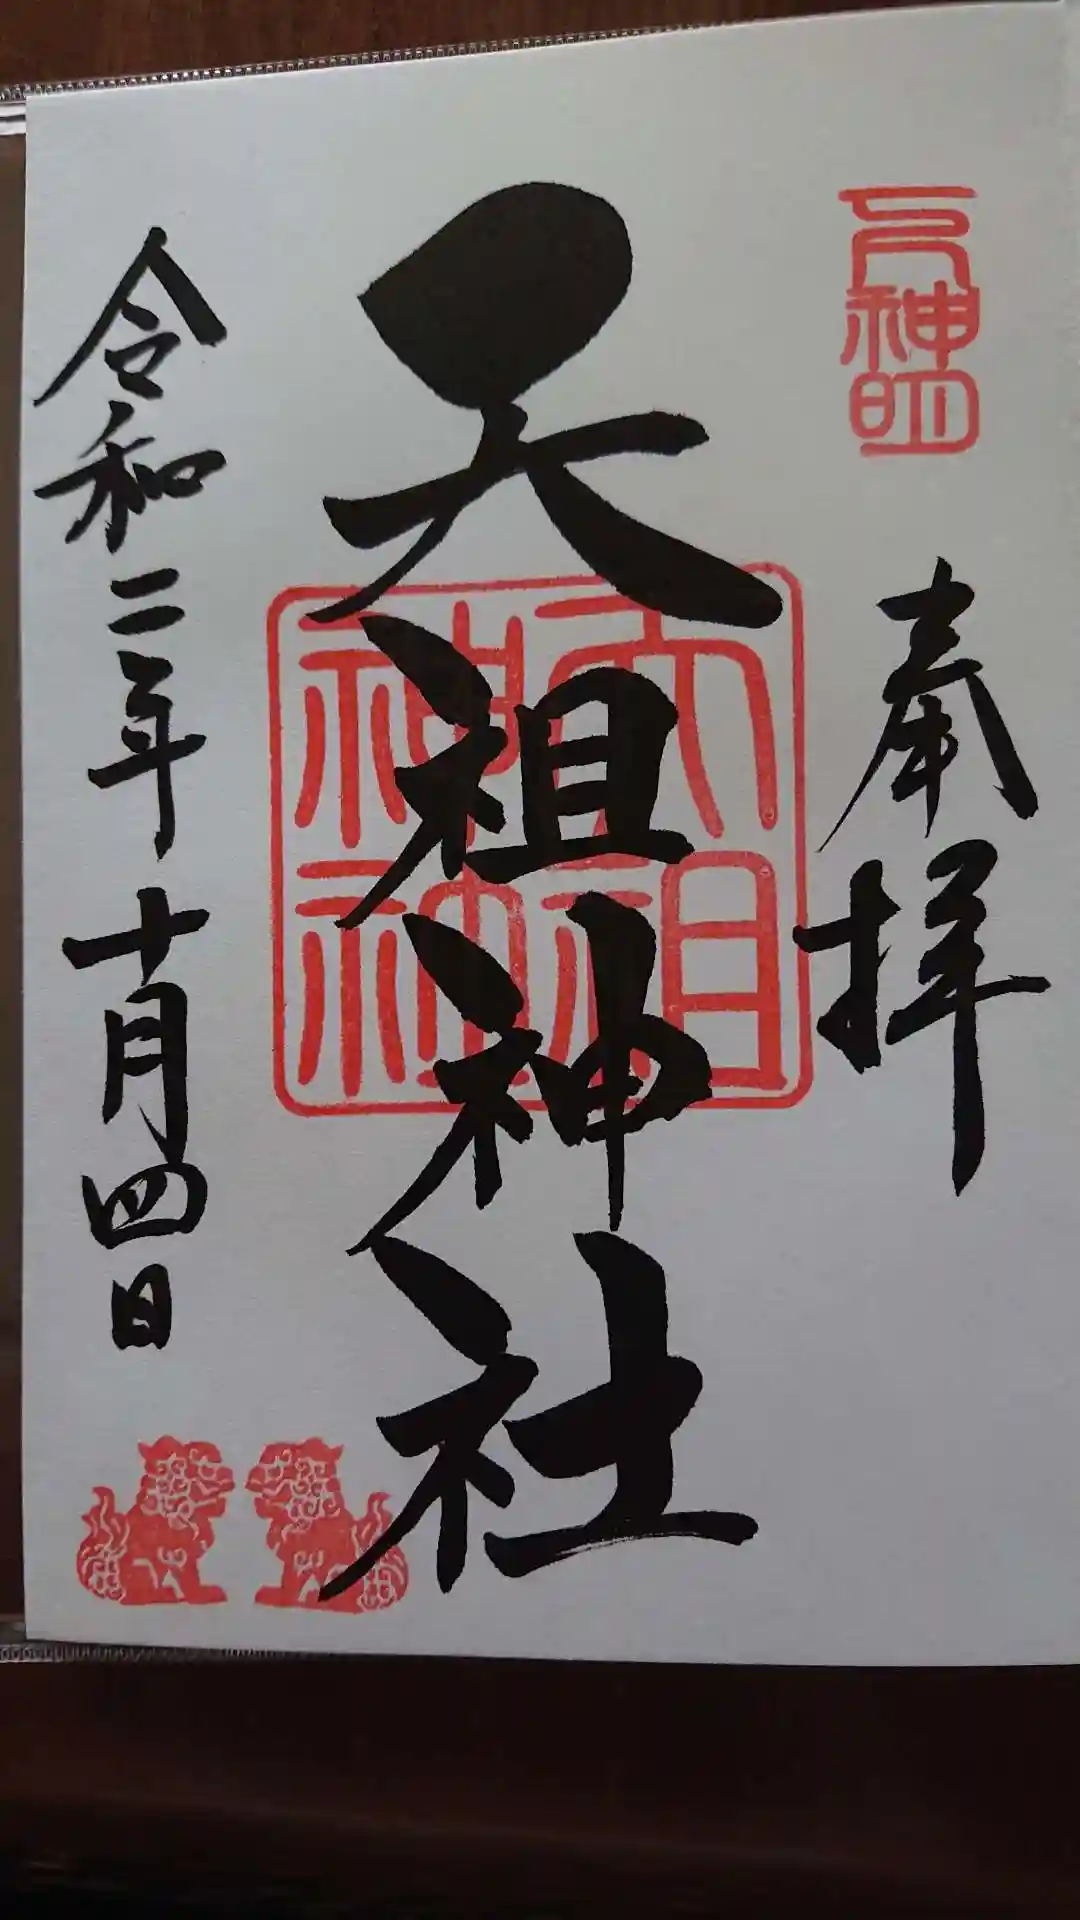 神明
奉拝
天祖神社
天祖神社
令和二年十月四日